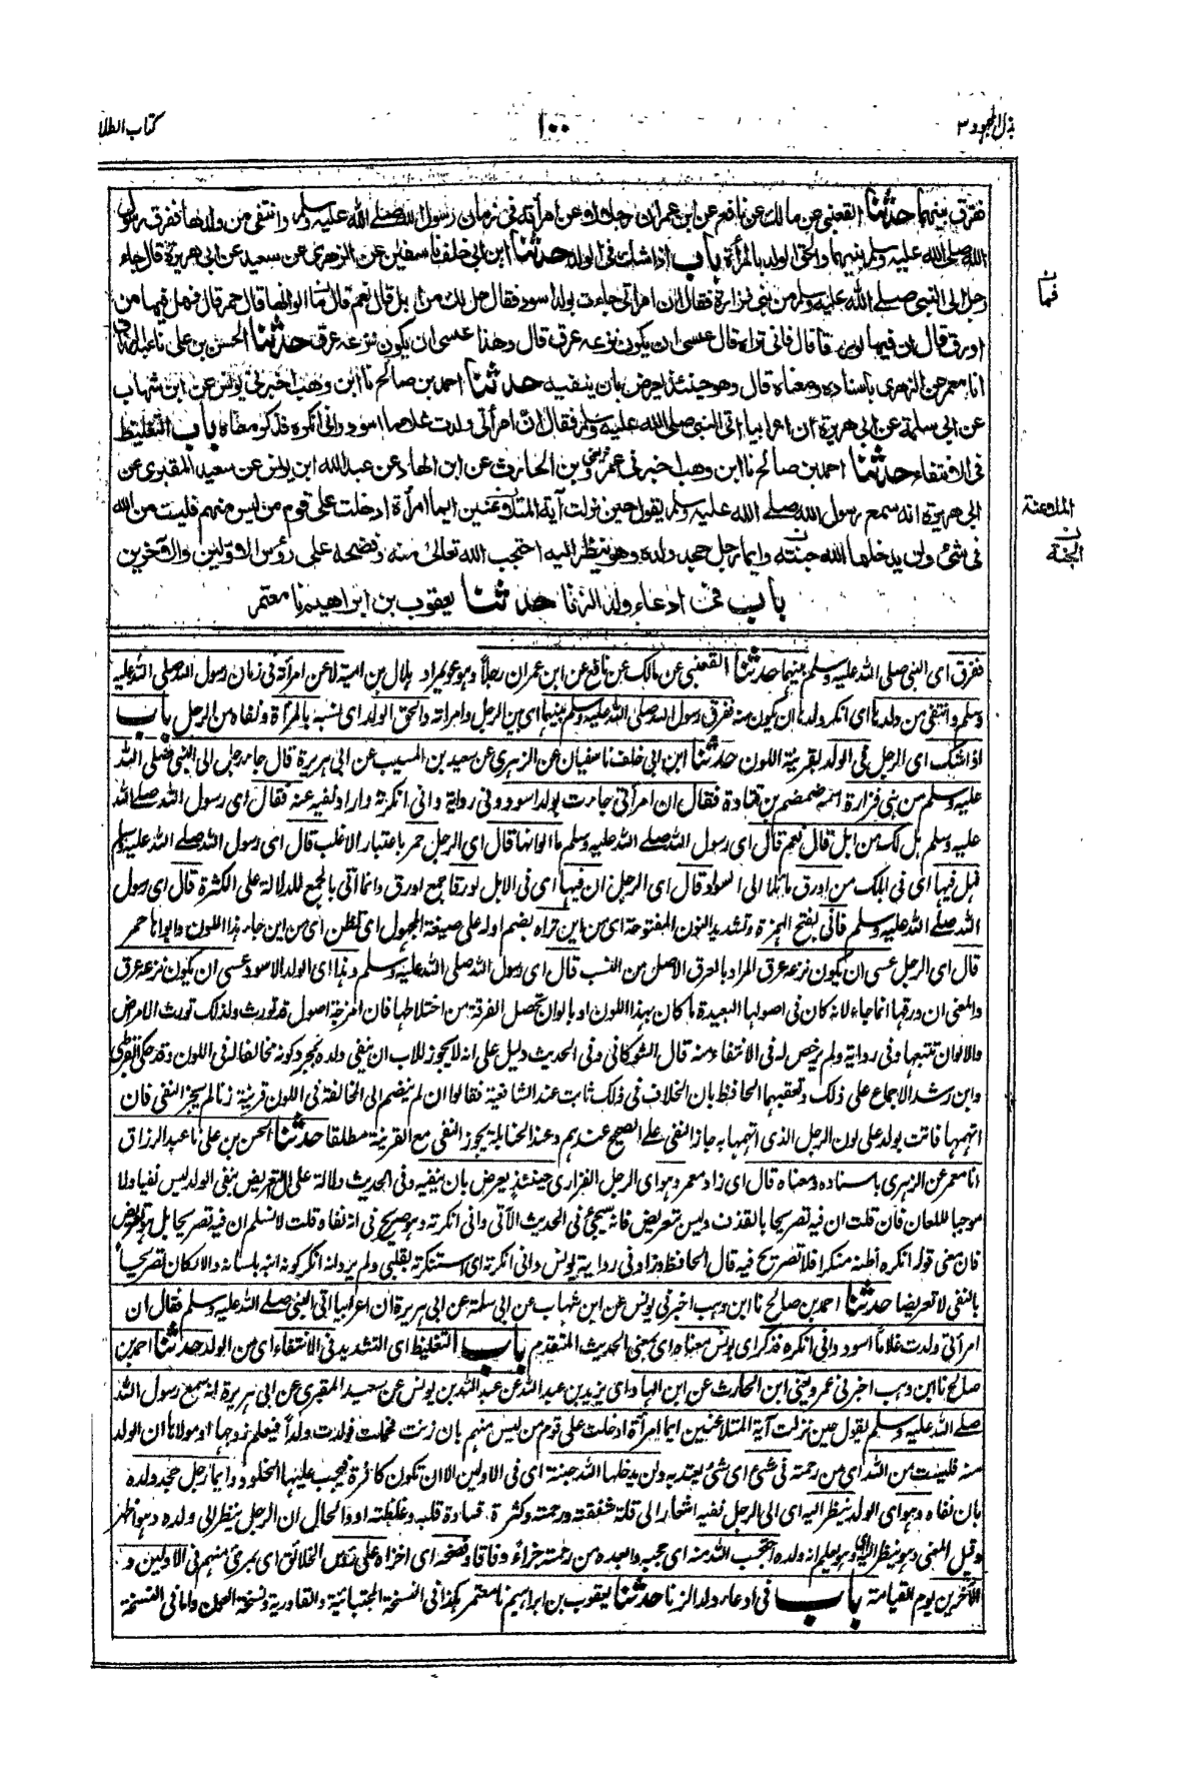 بذل المجهود ٣
١٠٠
كتاب الطلا
فرق بينهما حدثنا القعنبي عن مالك عن نافع عن ابن عمر ان رجلا لاعن امرأته في زمان رسول الله صلى الله عليه وسلم وانتفى من ولدها ففرق رسول
الله صلى الله عليه وسلم بينهما والحق الولد بالمرأة باب اذا شك في الولد حدثنا ابن ابي خلف نا سفين عن الزهري عن سعيد عن ابي هريرة قال جاء
رجل الى النبي صلى الله عليه وسلم من بني فزارة فقال ان امرأتي جاءت بولد اسود فقال هل لك من ابل قال نعم قال ما الوانها قال حمر قال فهل فيها من
اورق قال ان فيها لورقا قال فانى تراه قال عسى ان يكون نزعه عرق قال وهذا عسى ان يكون نزعه عرق حدثنا الحسن بن علي نا عبد الرزاق
انا معمر عن الزهري باسناده ومعناه قال وهو حينئذ يعرض بان ينفيه حدثنا احمد بن صالح نا ابن وهب اخبرني يونس عن ابن شهاب
عن ابي سلمة عن ابي هريرة ان اعرابيا اتى النبي صلى الله عليه وسلم فقال ان امرأتي ولدت غلاما اسود واني انكره فذكر معناه باب التغليظ
في الانتفاء حدثنا احمد بن صالح نا ابن وهب اخبرني عمرو يعني بن الحارث عن ابن الهاد عن عبد الله ابن يونس عن سعيد المقبري عن
ابي هريرة انه سمع رسول الله صلى الله عليه وسلم يقول حين نزلت آية المتلاعنين ايما امرأة ادخلت على قوم من ليس منهم فليست من الله
في شئ ولن يدخلها الله جنته وايما رجل جحد ولده وهو ينظر اليه احتجب الله تعالى منه وفضحه على رؤس الاولين والآخرين
باب في ادعاء ولد الزنا حدثنا يعقوب بن ابراهيم نا معتمر
فما ن
الملاعنة
ن
الجنة
ففرق اى النبي صلى الله عليه وسلم بينهما حدثنا القعنبي عن مالك عن نافع عن ابن عمر ان رجلاً وهو عويمر او هلال بن امية لاعن امرأة في زمان رسول الله صلى الله عليه
وسلم وانتفى من ولدها اى انكر ولدها ان يكون منه ففرق رسول الله صلى الله عليه وسلم بينهما اى بين الرجل وامرأته والحق الولد اى نسبه بالمرأة ونفاه من الرجل باب
اذا شك اى الرجل في الولد بقرينة اللون حدثنا ابن ابي خلف نا سفيان عن الزهري عن سعيد بن المسيب عن ابي هريرة قال جاء رجل الى النبي صلى الله
عليه وسلم من بني فزارة اسمه ضمضم بن قتادة فقال ان امرأتي جاءت بولد اسود وفي رواية واني انكرته واراد نفيه عنه فقال اى رسول الله صلى الله
عليه وسلم هل لك من ابل قال نعم قال اى رسول الله صلى الله عليه وسلم ما الوانها قال اى الرجل حمر باعتبار الاغلب قال اى رسول الله صلى الله عليه وسلم
فهل فيها اى في ابلك من اورق مائلا الى السواد قال اى الرجل ان فيها اى في الابل لورقا جمع اورق وانما اتى بالجمع للدلالة على الكثرة قال اى رسول
الله صلى الله عليه وسلم فانى بفتح الهمزة وتشديد النون المفتوحة اى من اين تراه بضم اوله على صيغة المجهول اى تظن اى من اين جاء هذا اللون وابواها حمر
قال اى الرجل عسى ان يكون نزعه عرق المراد بالعرق الاصل من النسب قال اى رسول الله صلى الله عليه وسلم وهذا اى الولد الاسود عسى ان يكون نزعه عرق
والمعنى ان ورقها انما جاء لانه كان في اصولها البعيدة ما كان بهذا اللون او بالوان تحصل الفرقة من اختلاطها فان امزجة اصول قد تورث ولذلك تورث الامراض
والالوان تتبعها وفي رواية ولم يرخص له في الانتفاء منه قال الشوكاني وفي الحديث دليل على انه لا يجوز للاب ان ينفي ولده بمجرد كونه مخالفا له في اللون وقد حكى القرطبي
وابن رشد الاجماع على ذلك وتعقبهما الحافظ بان الخلاف في ذلك ثابت عند الشافعية فقالوا ان لم ينضم الى المخالفة في اللون قرينة زنا لم يجز النفي فان
اتهمها فاتت بولد على لون الرجل الذي اتهمها به جاز النفي على الصحيح عندهم وعند الحنابلة يجوز النفي مع القرينة مطلقا حدثنا الحسن بن علي نا عبد الرزاق
انا معمر عن الزهري باسناده ومعناه قال اى زاد معمر وهو اى الرجل الفزاري حينئذ يعرض بان ينفيه وفي الحديث دلالة على ان التعريض بنفي الولد ليس نفيا ولا
موجبا للعان فان قلت ان فيه تصريحا بالقذف وليس تعريض فانه سيجئ في الحديث الآتي واني انكرته وهو صريح في انه نفاه قلت لا نسلم ان فيه تصريحا بل هو تعريض
فان معنى قوله انكره اظنه منكرا فلا تصريح فيه قال الحافظ وزاد في رواية يونس واني انكرته اى استنكرته بقلبي ولم يرد انه انكر كونه ابنه بلسانه والا لكان تصريحاً
بالنفي لا تعريضا حدثنا احمد بن صالح نا ابن وهب اخبرني يونس عن ابن شهاب عن ابي سلمة عن ابي هريرة ان اعرابيا اتى النبي صلى الله عليه وسلم فقال ان
امرأتي ولدت غلاماً اسود واني انكره فذكر اى يونس معناه اى بمعنى الحديث المتقدم باب التغليظ اى التشديد في الانتفاء اى من الولد حدثنا احمد بن
صالح نا ابن وهب اخبرني عمرو يعني ابن الحارث عن ابن الهاد اى يزيد بن عبد الله عن عبد الله بن يونس عن سعيد المقبري عن ابي هريرة انه سمع رسول الله
صلى الله عليه وسلم يقول حين نزلت آية المتلاعنين ايما امرأة ادخلت على قوم من ليس منهم بان زنت فحملت فولدت ولداً فيعلم زوجها او مولاها ان الولد
منه فليست من الله اى من رحمته في شئ اى شئ يعتد به ولن يدخلها الله جنته اى في الاولين الا ان تكون كافرة فيجب عليها الخلود وايما رجل جحد ولده
بان نفاه وهو اى الولد ينظر اليه اى الى الرجل ففيه اشعار الى قلة شفقته ورحمته وكثرة قساوة قلبه وغلظته او والحال ان الرجل ينظر الى ولده وهو اظهر
وقيل المعنى وهو ينظر اليه اى وهو يعلم انه ولده احتجب الله منه اى حجبه وابعده من رحمته جزاءً وفاقا وفضحه اى اخزاه على رؤس الخلائق اى بمرئ منهم في الاولين و
الآخرين يوم القيامة باب في ادعاء ولد الزنا حدثنا يعقوب بن ابراهيم نا معتمر هكذا في النسخة المجتبائية والقادرية ونسخة العون واما في النسخة